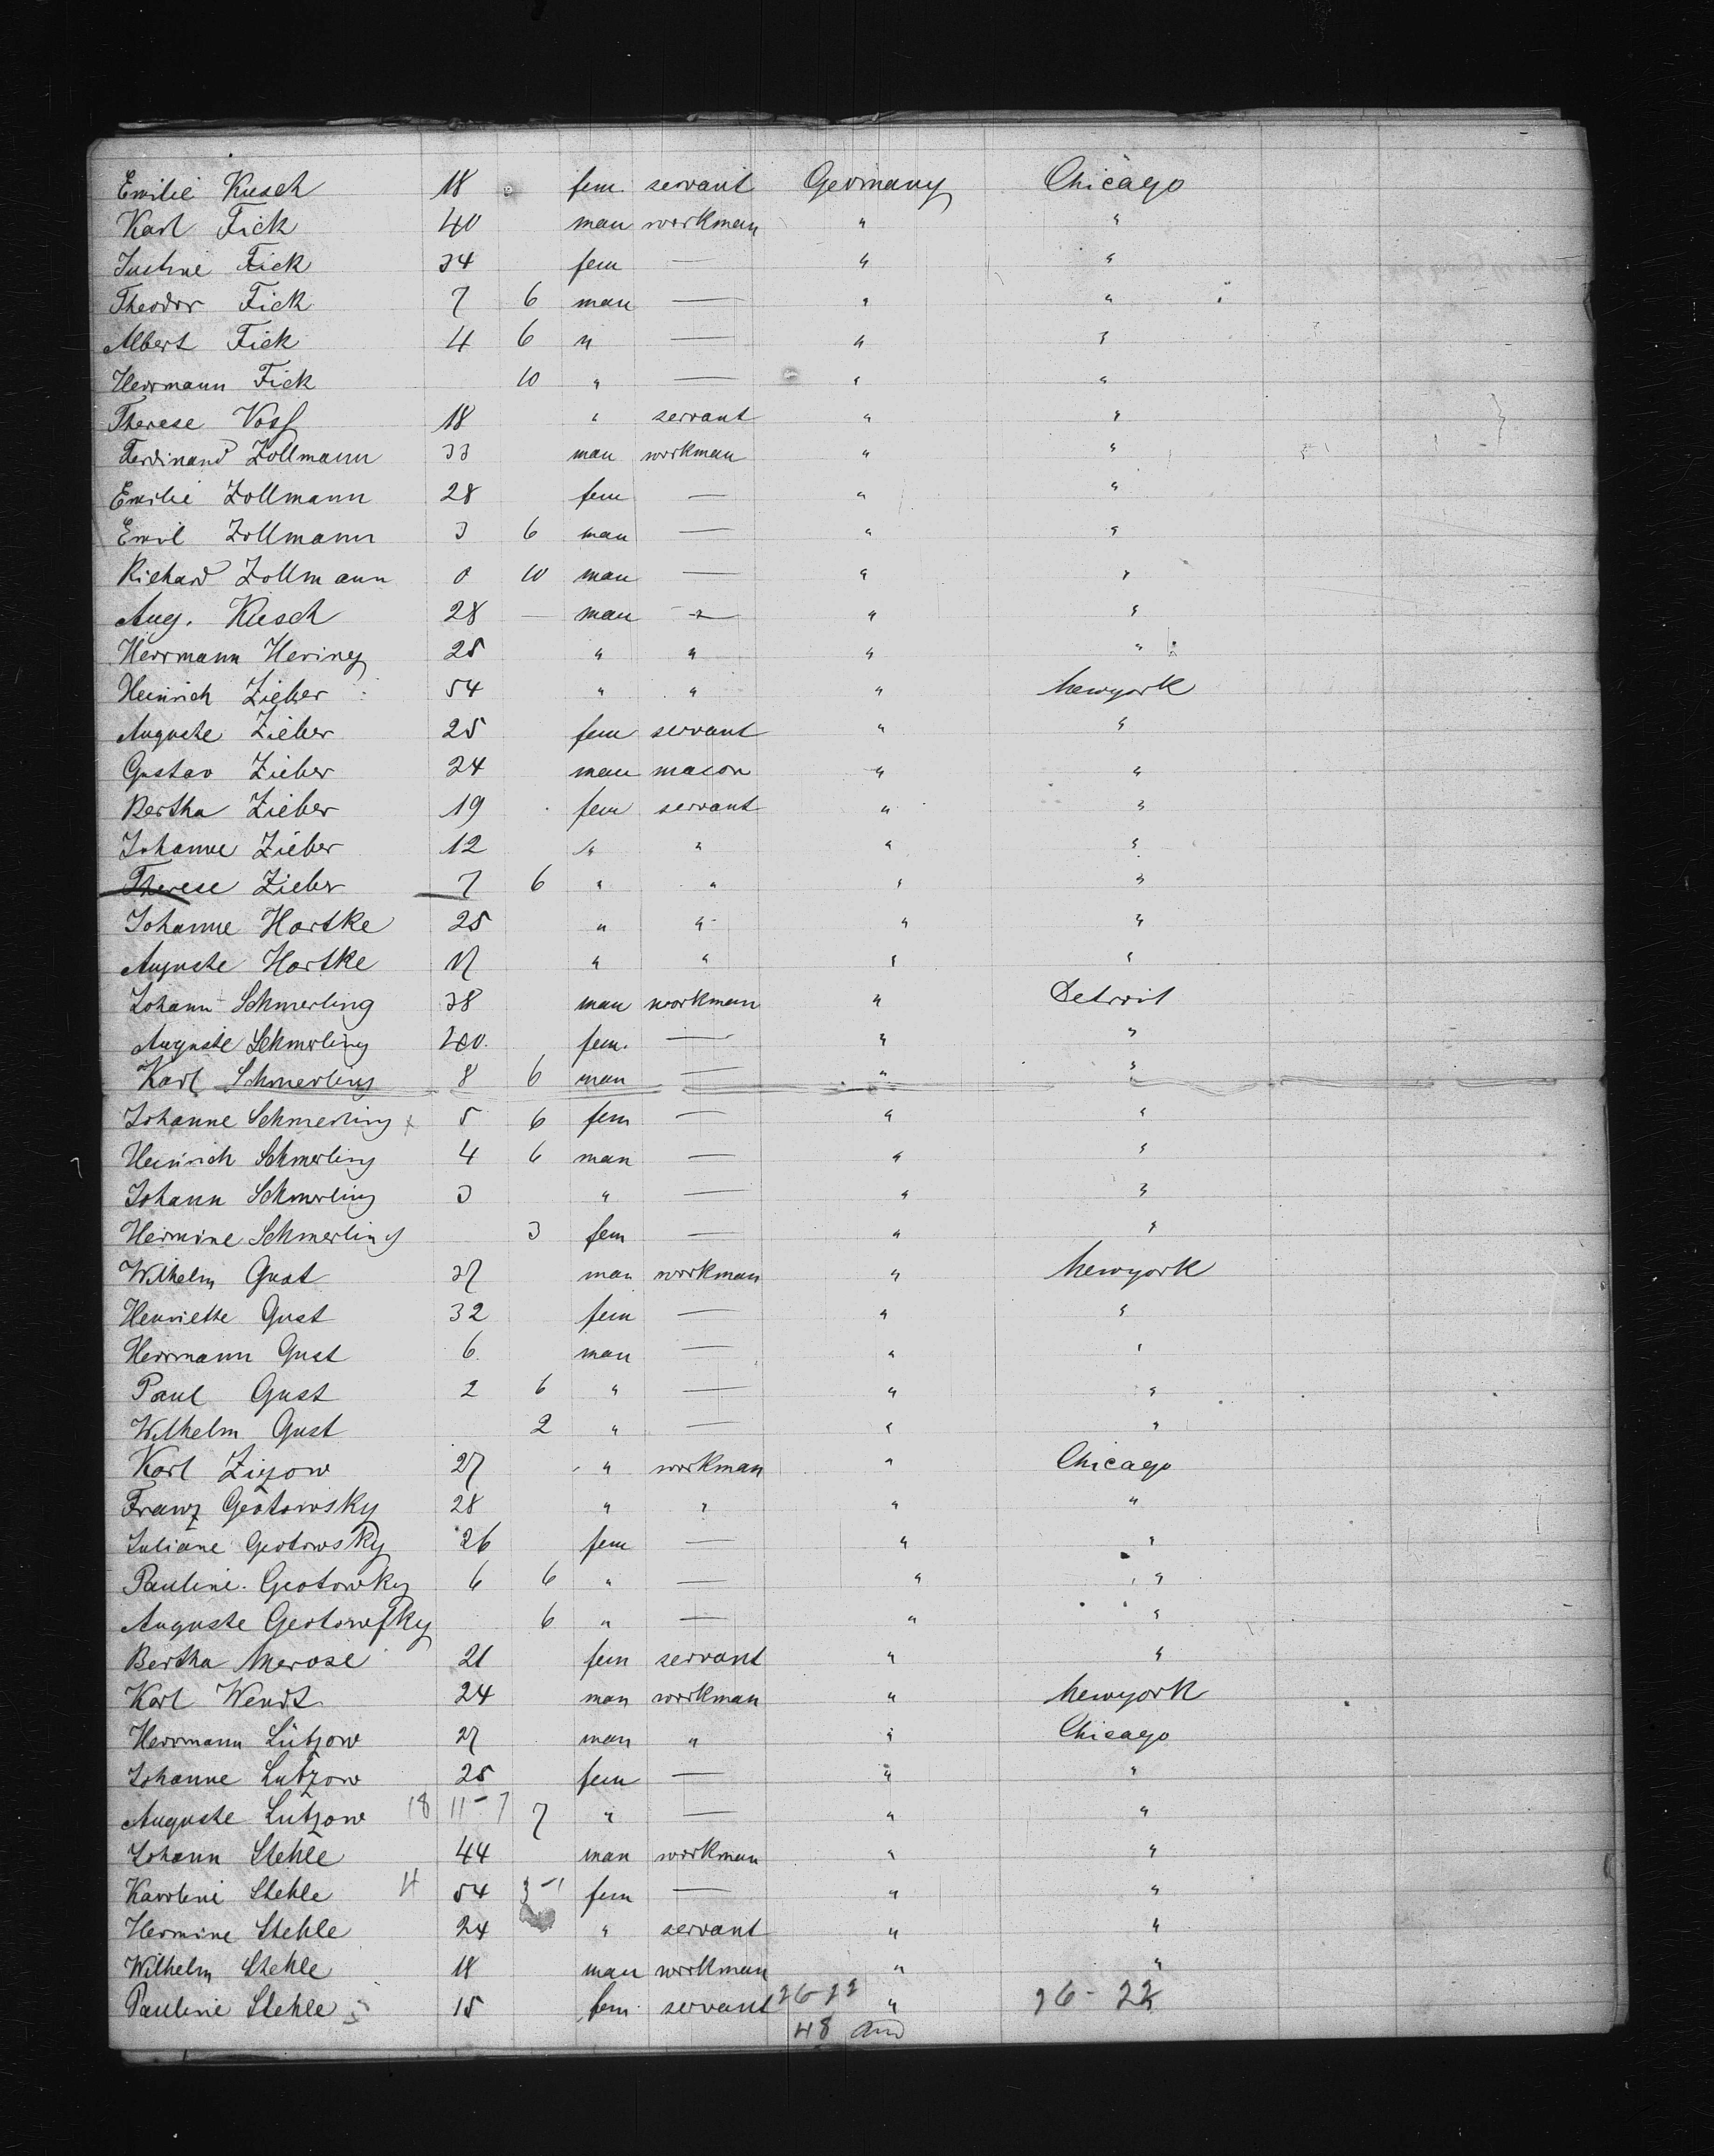 Emilie Kusch 18 fem servant Germany Chicago
Karl Fick 40 man workman " "
Justine Fick 34 fem — " "
Theodor Fick 7 6 man — " "
Albert Fick 4 6 " — " "
Herrmann Fick 10 " — " "
Therese Voss 18 " servant " "
Ferdinand Zollmann 33 man workman " "
Emilie Zollmann 28 fem — " "
Emil Zollmann 3 6 man — " "
Richard Zollmann 0 10 man — " "
Aug. Kusch 28 — man " " "
Herrmann Hering 25 " " " "
Heinrich Zieber 54 " " " Newyork
Auguste Zieber 25 fem servant " "
Gustav Zieber 24 man macon " "
Bertha Zieber 19 fem servant " "
Johanne Zieber 12 " " " "
Therese Zieber 7 6 " " " "
Johanne Hartke 25 " " " "
Auguste Hartke 17 " " " "
Johann Schmerling 38 man workman " Detroit
Auguste Schmerling 40 fem. — " "
Karl Schmerling 8 6 man — " "
Johanne Schmerling x 5 6 fem — " "
Heinrich Schmerling 4 6 man — " "
Johann Schmerling 3 " — " "
Hermine Schmerling 3 fem — " "
Wilhelm Gust 37 man workman " Newyork
Henriette Gust 32 fem — " "
Herrmann Gust 6 man — " "
Paul Gust 2 6 " — " "
Wilhelm Gust 2 " — " "
Karl Zizow 27 " workman " Chicago
Franz Geotowsky 28 " " " "
Juliane Geotowsky 26 fem — " "
Pauline Geotowky 6 6 " — " "
Auguste Geotowsky 6 " — " "
Bertha Merose 21 fem servant " "
Karl Wendt 24 man workman " Newyork
Herrmann Lützow 27 man " " Chicago
Johanne Lutzow 25 fem — " "
Auguste Lutzow 18 11-7 7 " — " "
Johann Stehle 44 man workman " "
Karoline Stehle 4 54 3-1 fem — " "
Hermine Stehle 24 " servant " "
Wilhelm Stehle 18 man workman " "
Pauline Stehle 15 fem servant 26-22 " 26-22
48